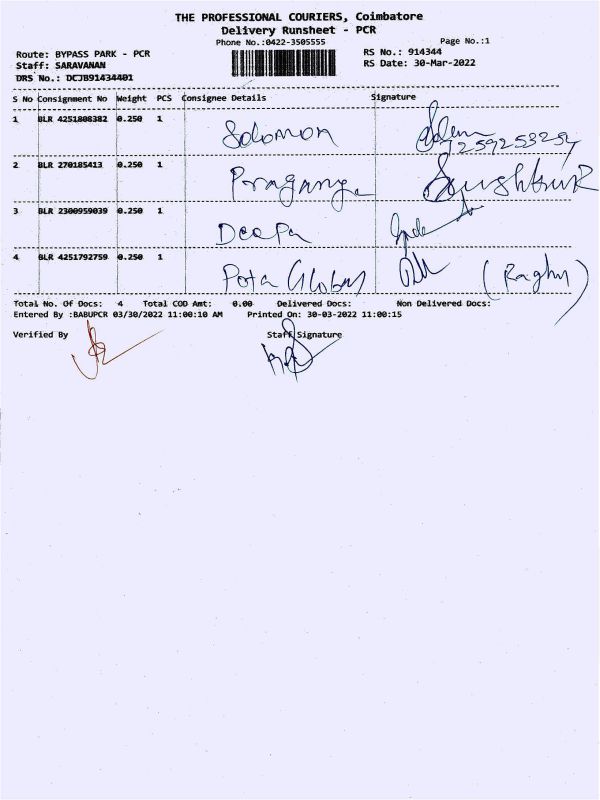 THE PROFESSIONAL COURIERS, Coimbatore
Delivery Runsheet - PCR
Phone No.:0422-3505555 Page No.:1
Route: BYPASS PARK - PCR RS No.: 914344
Staff: SARAVANAN RS Date: 30-Mar-2022
DRS No.: DCJB91434401
S No Consignment No Weight PCS Consignee Details Signature
1 BLR 4251808382 0.250 1 Solomon
7259253254
2 BLR 270185413 0.250 1
3 BLR 2300959039 0.250 1 Deepa
4 BLR 4251792759 0.250 1 Pota Global (Raghu)
Total No. Of Docs: 4 Total COD Amt: 0.00 Delivered Docs: Non Delivered Docs:
Entered By :BABUPCR 03/30/2022 11:00:10 AM Printed On: 30-03-2022 11:00:15
Verified By Staff Signature